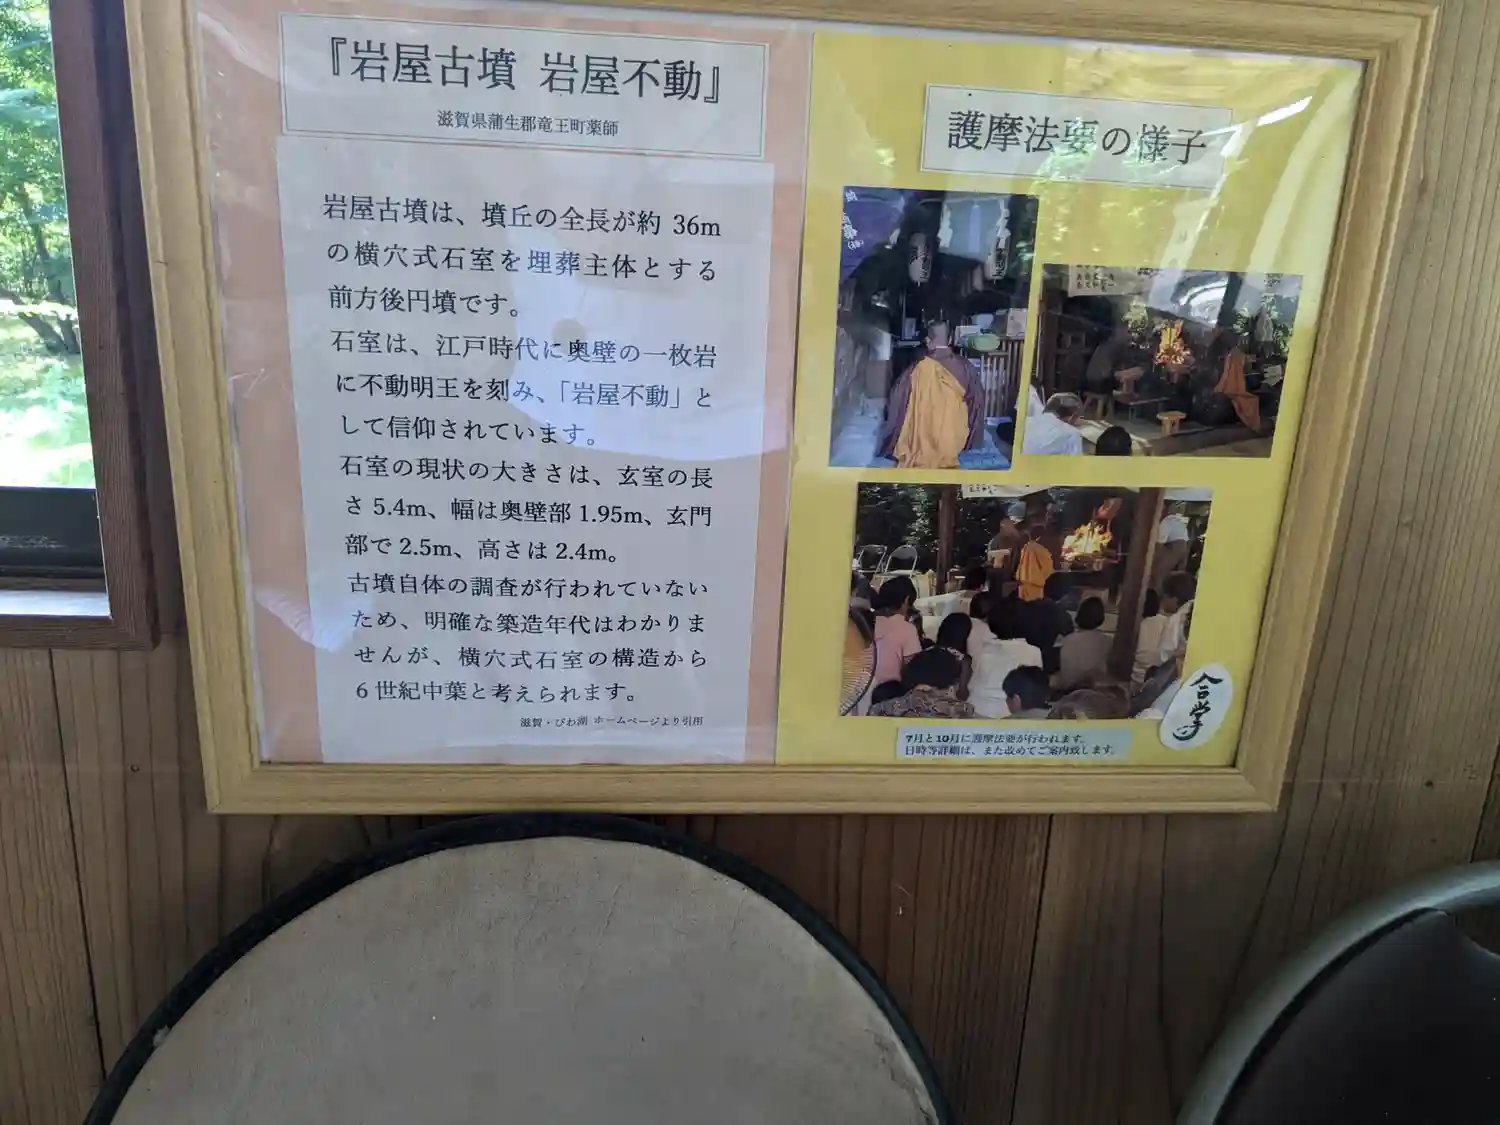 『岩屋古墳 岩屋不動』
滋賀県蒲生郡竜王町薬師
岩屋古墳は、墳丘の全長が約 36m
の横穴式石室を埋葬主体とする
前方後円墳です。
石室は、江戸時代に奥壁の一枚岩
に不動明王を刻み、「岩屋不動」と
して信仰されています。
石室の現状の大きさは、玄室の長
さ 5.4m、幅は奥壁部 1.95m、玄門
部で 2.5m、高さは 2.4m。
古墳自体の調査が行われていない
ため、明確な築造年代はわかりま
せんが、横穴式石室の構造から
6 世紀中葉と考えられます。
滋賀・びわ湖 ホームページより引用
護摩法要の様子
7月と10月に護摩法要が行われます。
日時等詳細は、また改めてご案内致します。
合掌